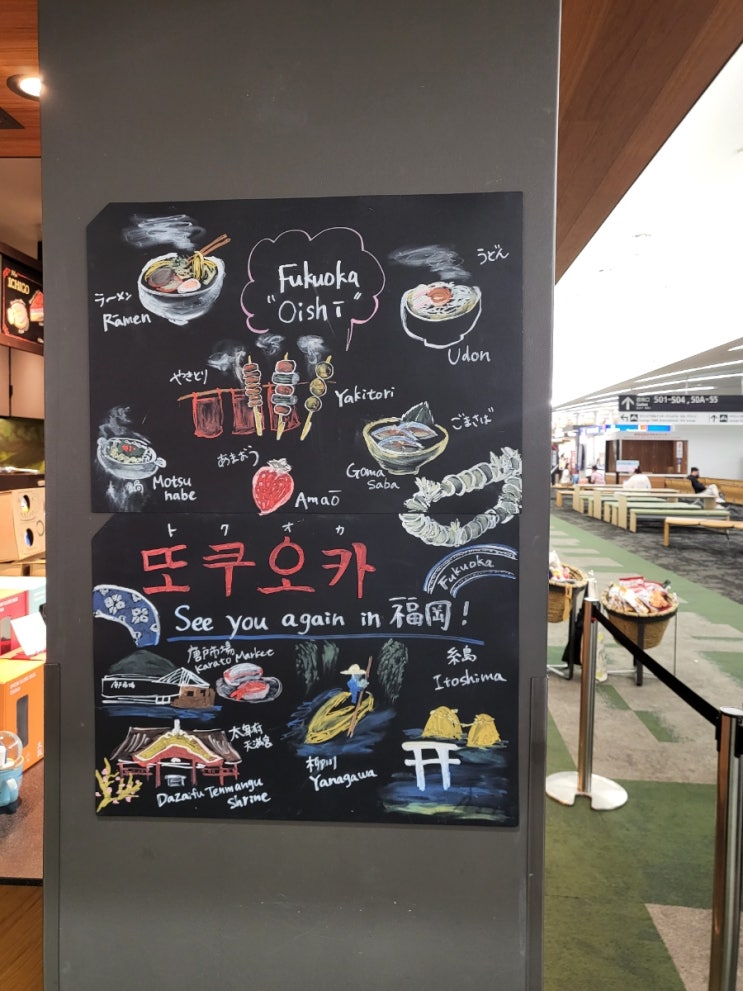 Fukuoka
"Oishī"
ラーメン
Rāmen
うどん
Udon
やきとり
Yakitori
ごまさば
Goma
Saba
Motsu
nabe
あまおう
Amaō
トクオカ
또쿠오카
Fukuoka
See you again in 福岡!
唐戸市場
Karato Market
糸島
Itoshima
太宰府
天満宮
Dazaifu Tenmangu
Shrine
柳川
Yanagawa
ICHICO
501-504, 50A-55